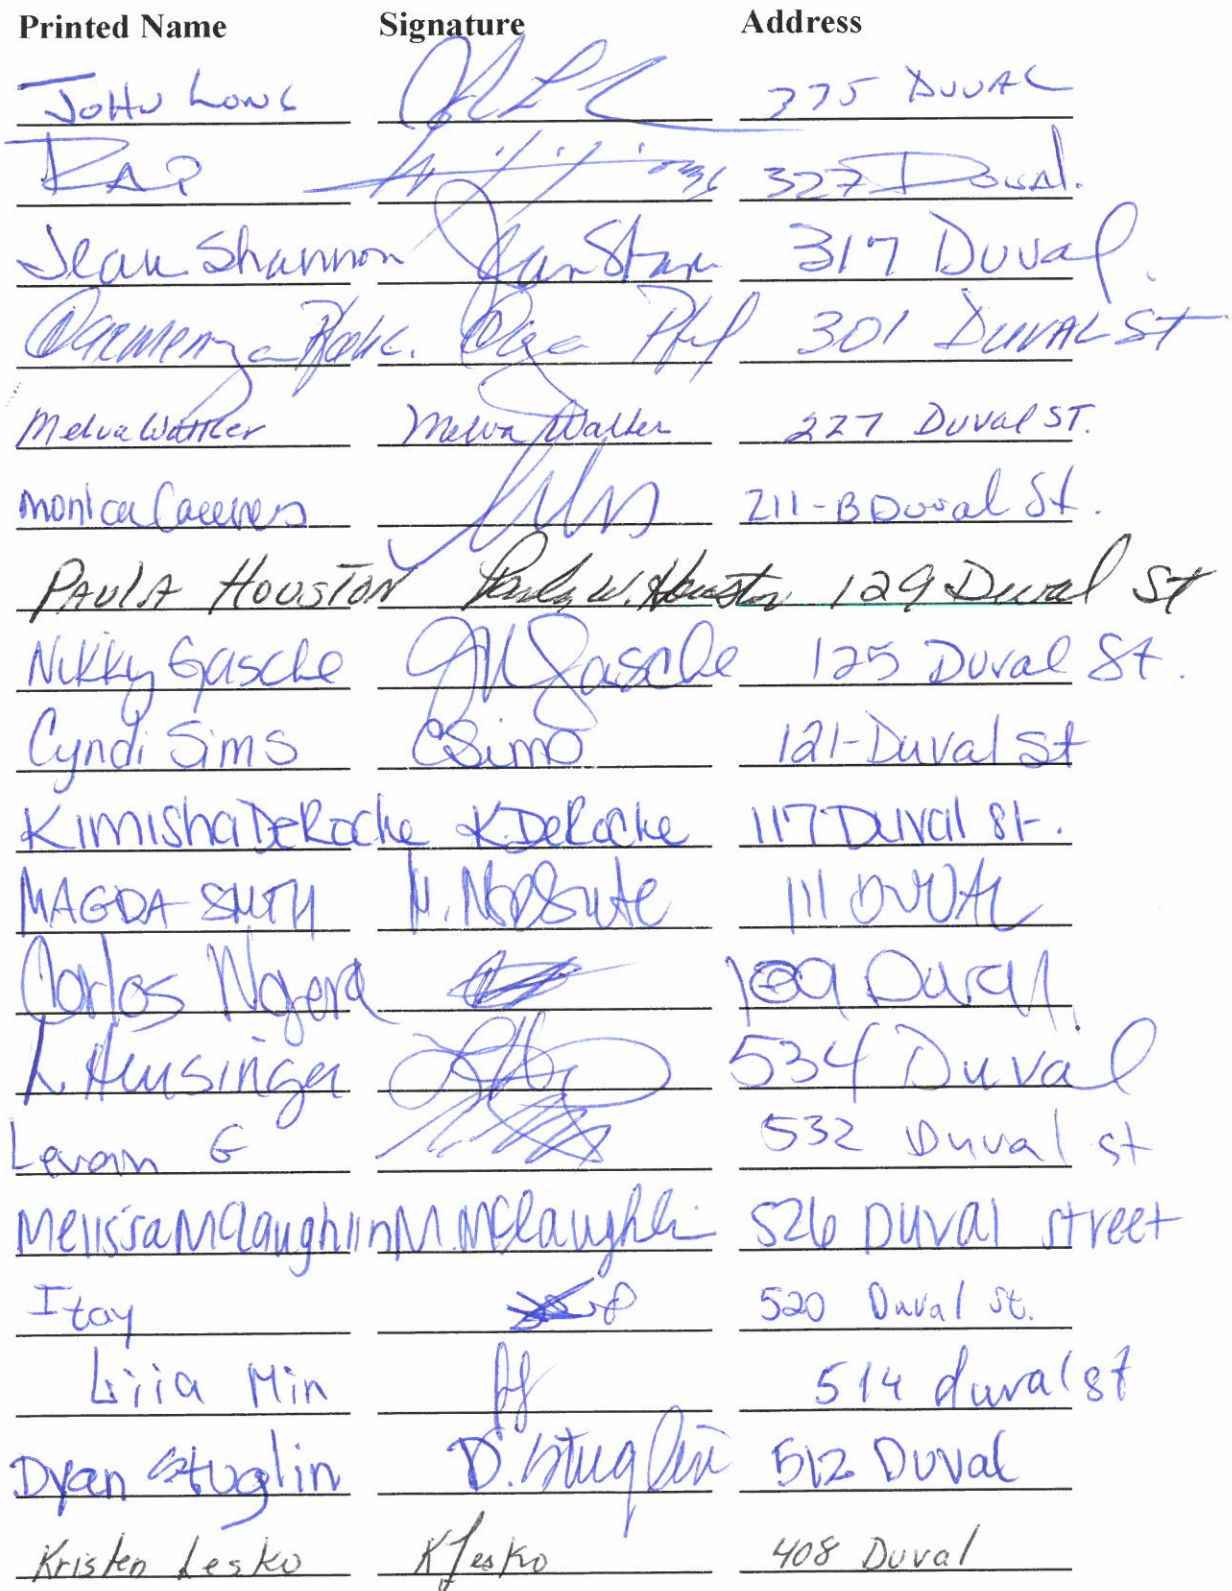 Printed Name Signature Address
John Long 375 Duval
RAP 327 Duval.
Jean Shannon Jean Shan 317 Duval
301 Duval St
Melva Walker Melva Walker 227 Duval ST.
Monica 211-B Duval St.
PAULA HOUSTON Paula W. Houston 129 Duval St
Nikky Gasche Gasche 125 Duval St.
Cyndi Sims CSims 121-Duval St
Kimisha DeRoche K.DeRoche 117 Duval St.
MAGDA SMITH 111 DUVAL
Carlos Nogera 109 Duval
L. Hensinger 534 Duval
Levan G 532 Duval st
Melissa McLaughlin M. McLaughlin 526 Duval street
Itay 520 Duval st.
Liia Min 514 duval st
Dyan Stuglin D. Stuglin 512 Duval
Kristen Lesko K Lesko 408 Duval